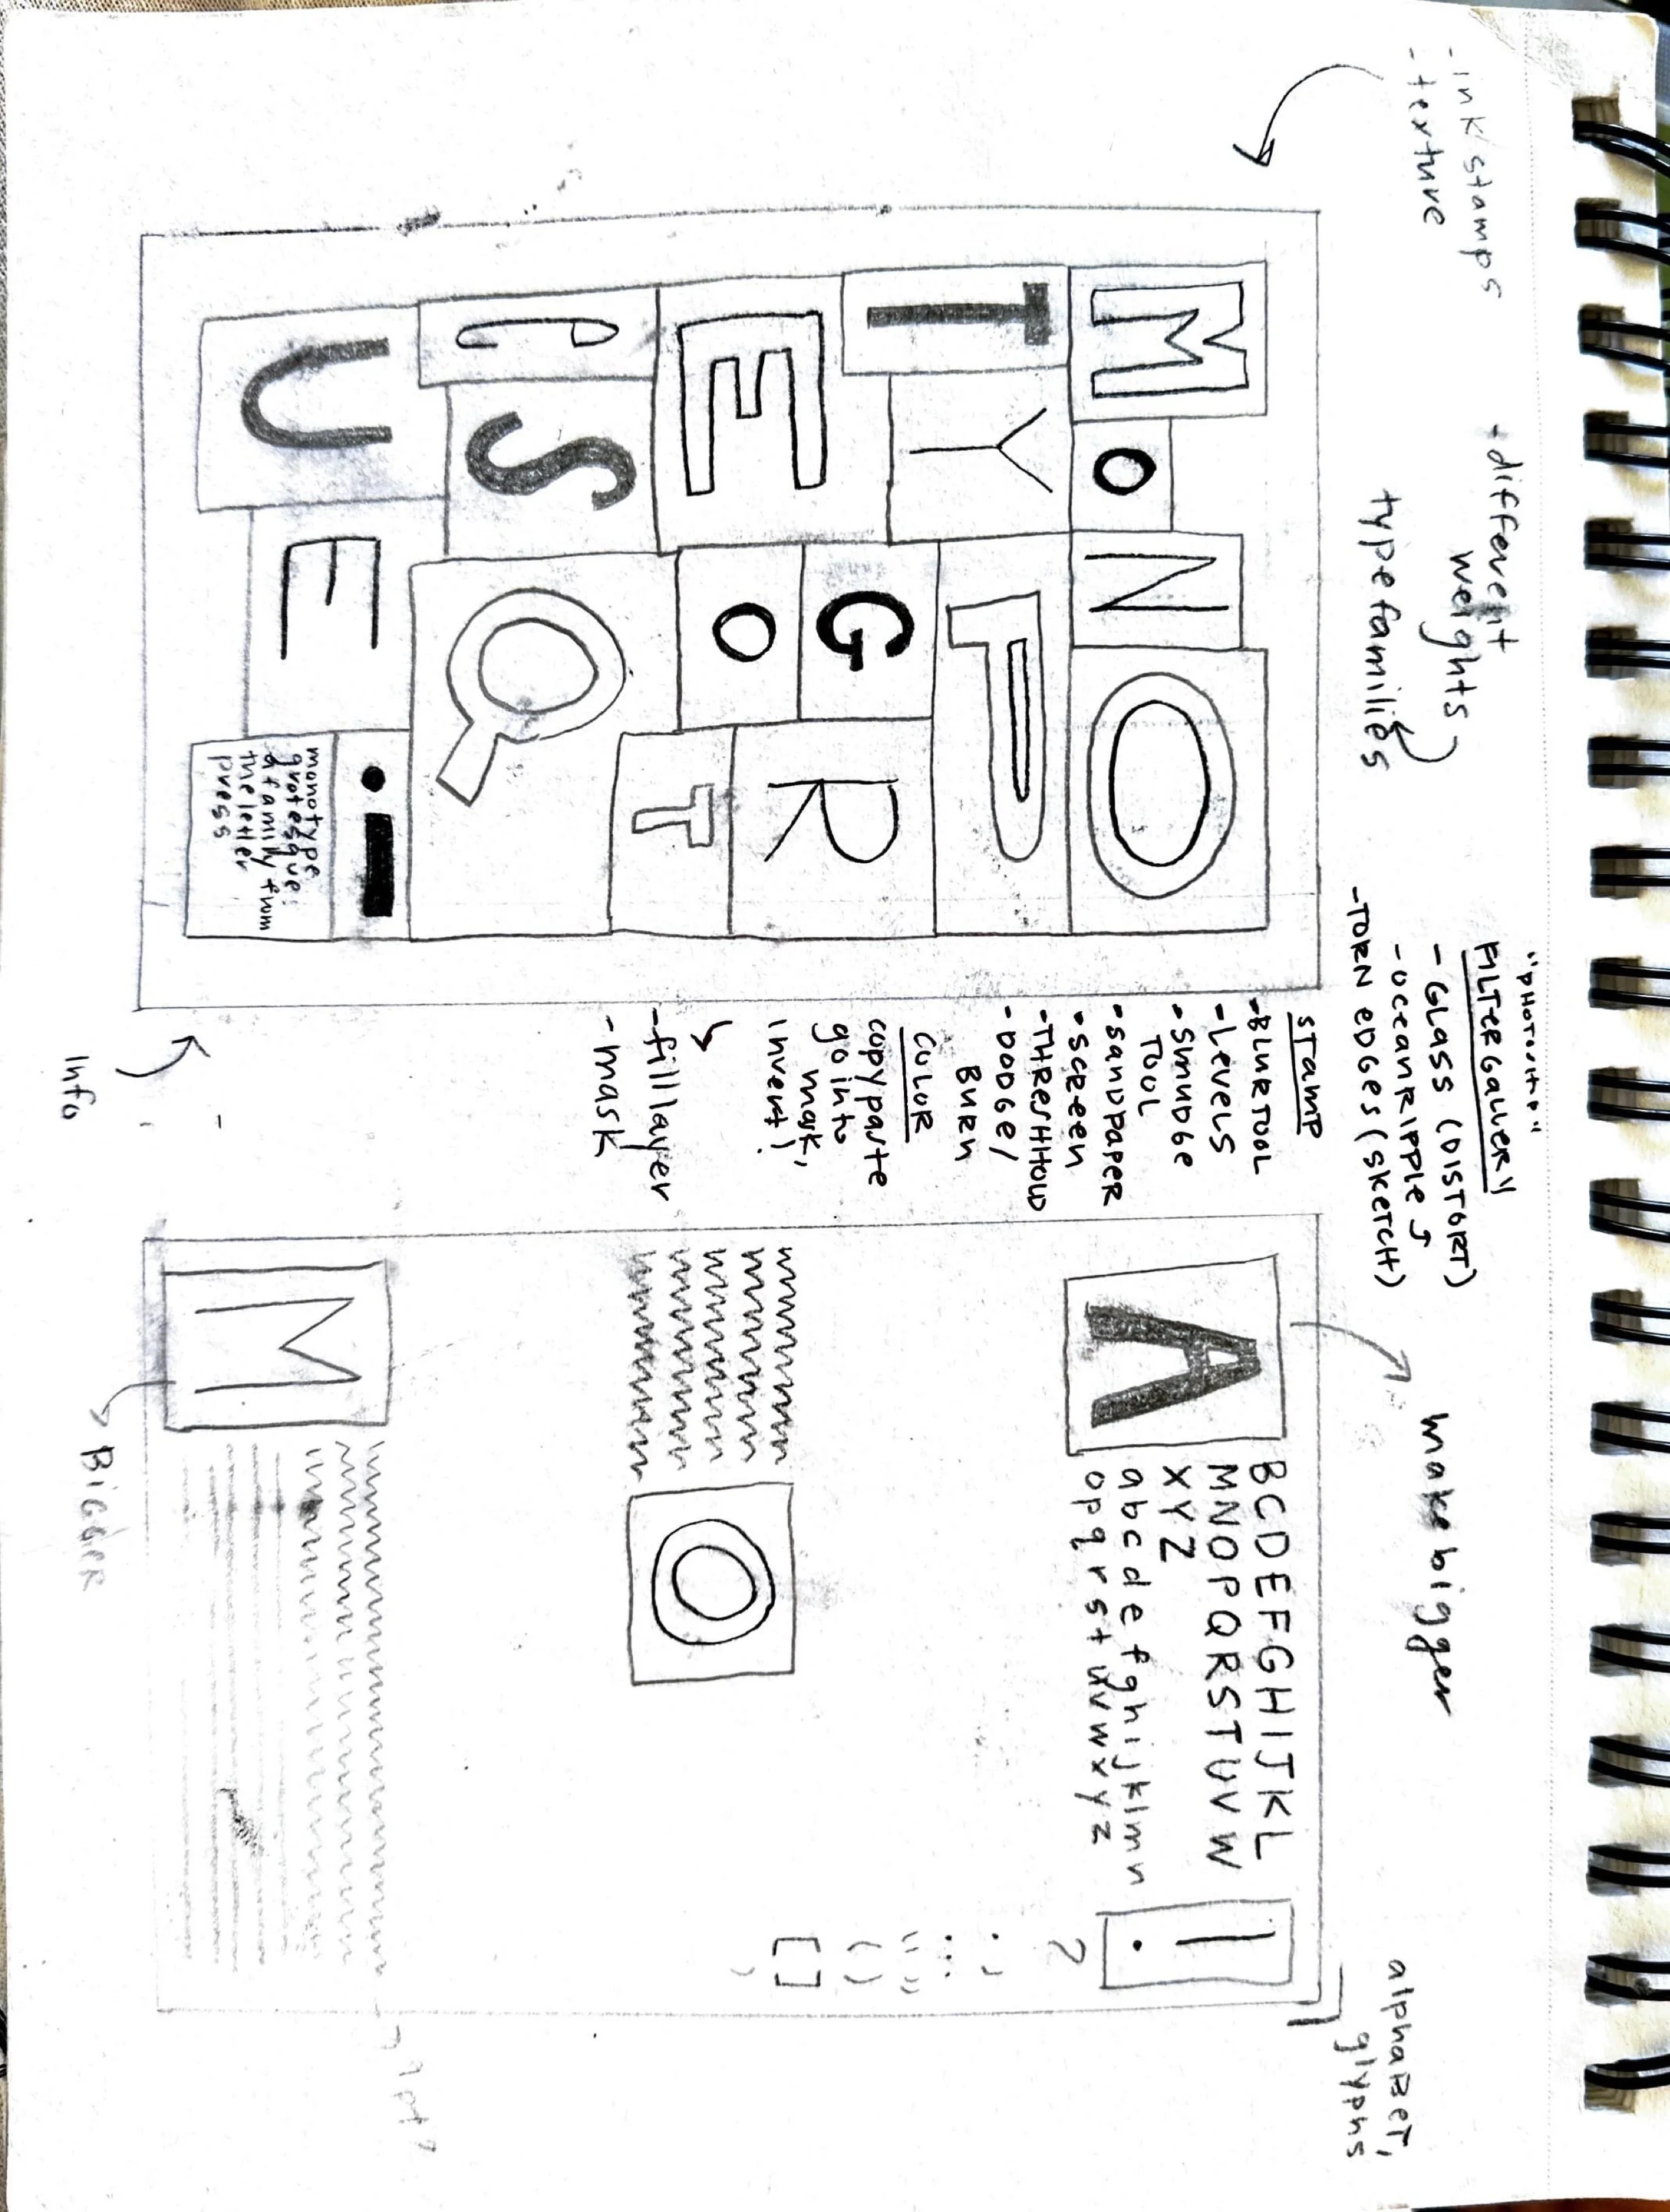 - ink stamps
- texture
+ different
weights
type families
"PHOTOSHOP"
FILTER GALLERY
- GLASS (DISTORT)
- OCEAN RIPPLE
- TORN EDGES (SKETCH)
make bigger
alphabet,
glyphs
M O N O
T Y P
E G
O R
P S Q T
U E !
monotype
grotesque:
a family from
the letter
press
Info
STAMP
- BLUR TOOL
- LEVELS
- SMUDGE
TOOL
- SANDPAPER
- SCREEN
- THRESHHOLD
- DODGE/
BURN
COLOR
copy paste
go into
mask,
invert)
- fill layer
- mask
A
BCDEFGHIJKL
MNOPQRSTUVW
XYZ
abcdefghijklmn
opqrstuvwxyz
!
?
. ,
: ;
“ ”
( )
[ ]
O
M
BIGGER